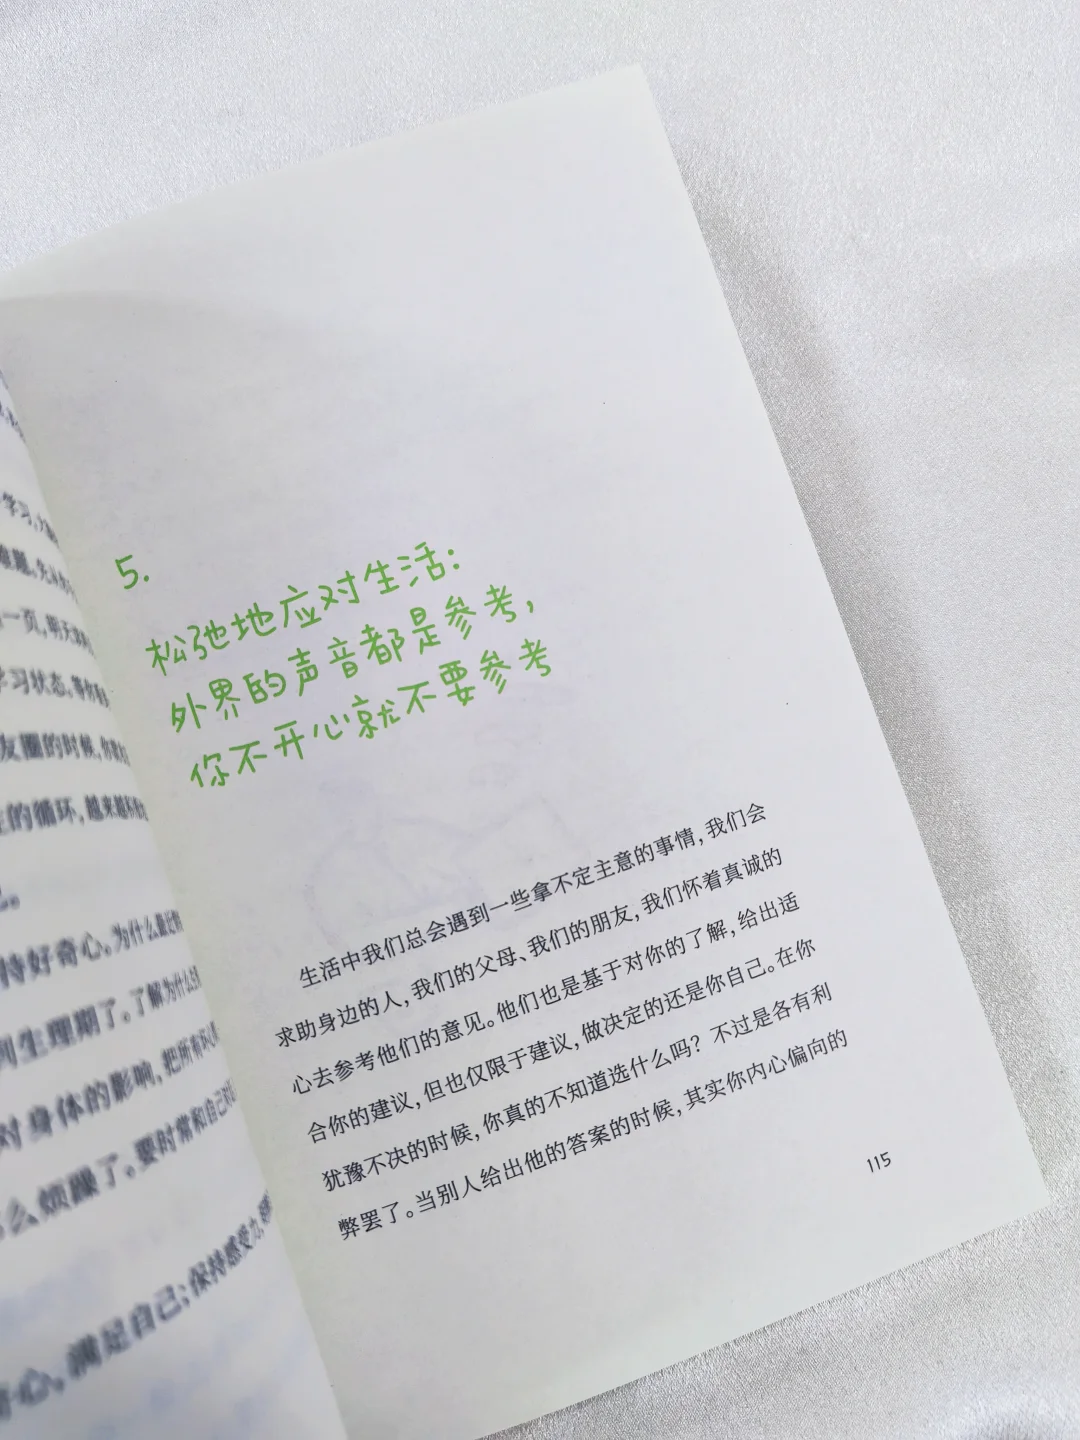 学习,
一页,明天
学习状态,等你
友圈的时候,你
的循环,越来越
持好奇心。为什么
生理期了。了解为什么
对身体的影响,把所有
么烦躁了。要时常和自己
心。满足自己;保持感受力,
5.
松弛地应对生活:
外界的声音都是参考,
你不开心就不要参考
生活中我们总会遇到一些拿不定主意的事情,我们会
求助身边的人,我们的父母、我们的朋友,我们怀着真诚的
心去参考他们的意见。他们也是基于对你的了解,给出适
合你的建议,但也仅限于建议,做决定的还是你自己。在你
犹豫不决的时候,你真的不知道选什么吗?不过是各有利
弊罢了。当别人给出他的答案的时候,其实你内心偏向的
115